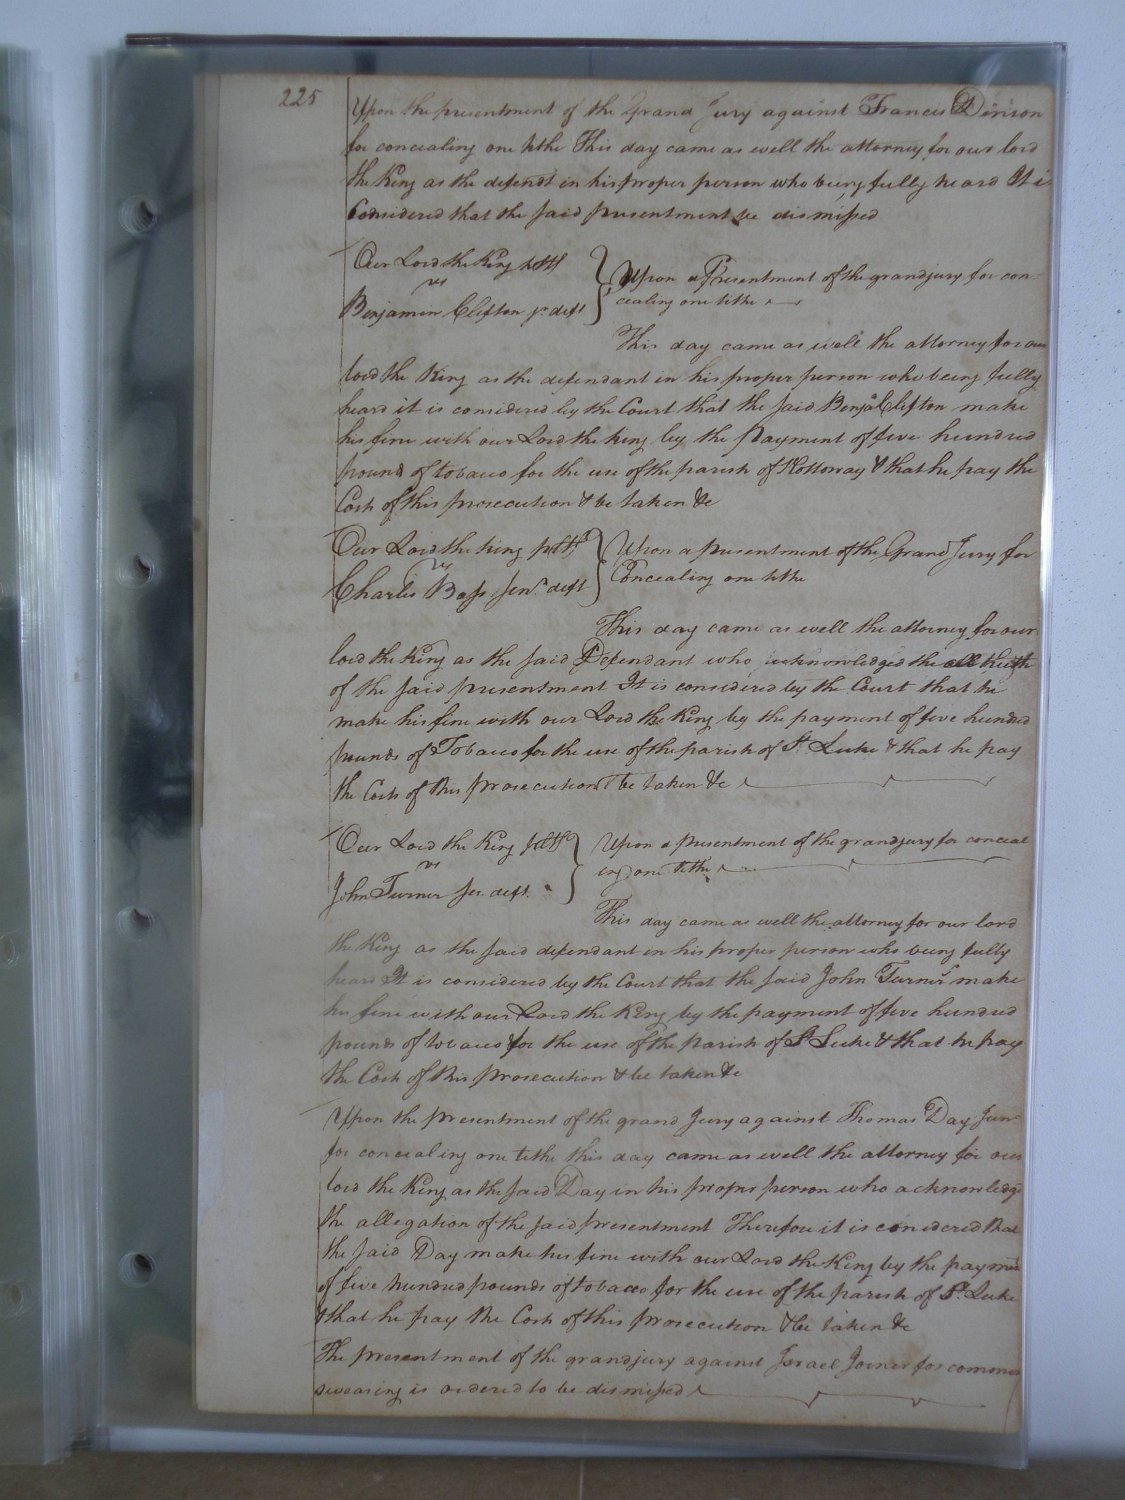 225
Upon the presentment of the Grand Jury against Francis Vinson
for concealing one tithe This day came as well the attorney for our lord
the King as the defendt in his proper person who being fully heard It is
Considered that the said presentment be dismissed
Our Lord the King pltff
vs
Benjamin Clifton jr deft
Upon a Presentment of the grandjury for con-
cealing one tithe
This day came as well the attorney for our
lord the King as the defendant in his proper person who being fully
heard it is considered by the Court that the said Benja Clifton make
his fine with our Lord the king by the payment of five hundred
pounds of tobacco for the use of the parish of Nottoway & that he pay the
Costs of this prosecution & be taken &c
Our Lord the king pltff
vs
Charles Bass senr deft
Upon a presentment of the Grand Jury for
Concealing one tithe
This day came as well the attorney for our
lord the King as the said Defendant who acknowledged the
of the said presentment It is considered by the Court that he
make his fine with our Lord the King by the payment of five hundred
pounds of Tobacco for the use of the parish of St Luke & that he pay
the Costs of this prosecution & be taken &c
Our Lord the King pltff
vs
John Turner ser deft.
Upon a presentment of the grandjury for conceal
ing one tithe
This day came as well the attorney for our lord
the King as the said defendant in his proper person who being fully
heard It is considered by the Court that the said John Turner make
his fine with our Lord the King by the payment of five hundred
pounds of tobacco for the use of the parish of St Luke & that he pay
the Costs of this prosecution & be taken &c
Upon the presentment of the grand Jury against Thomas Day Junr
for concealing one tithe this day came as well the attorney for our
lord the King as the said Day in his proper person who acknowledge
the allegation of the said presentment Therefore it is considered that
the said Day make his fine with our Lord the King by the payment
of five hundred pounds of tobacco for the use of the parish of St. Luke
& that he pay the Costs of this prosecution & be taken &c
The presentment of the grandjury against Israel Joiner for common
swearing is ordered to be dismissed